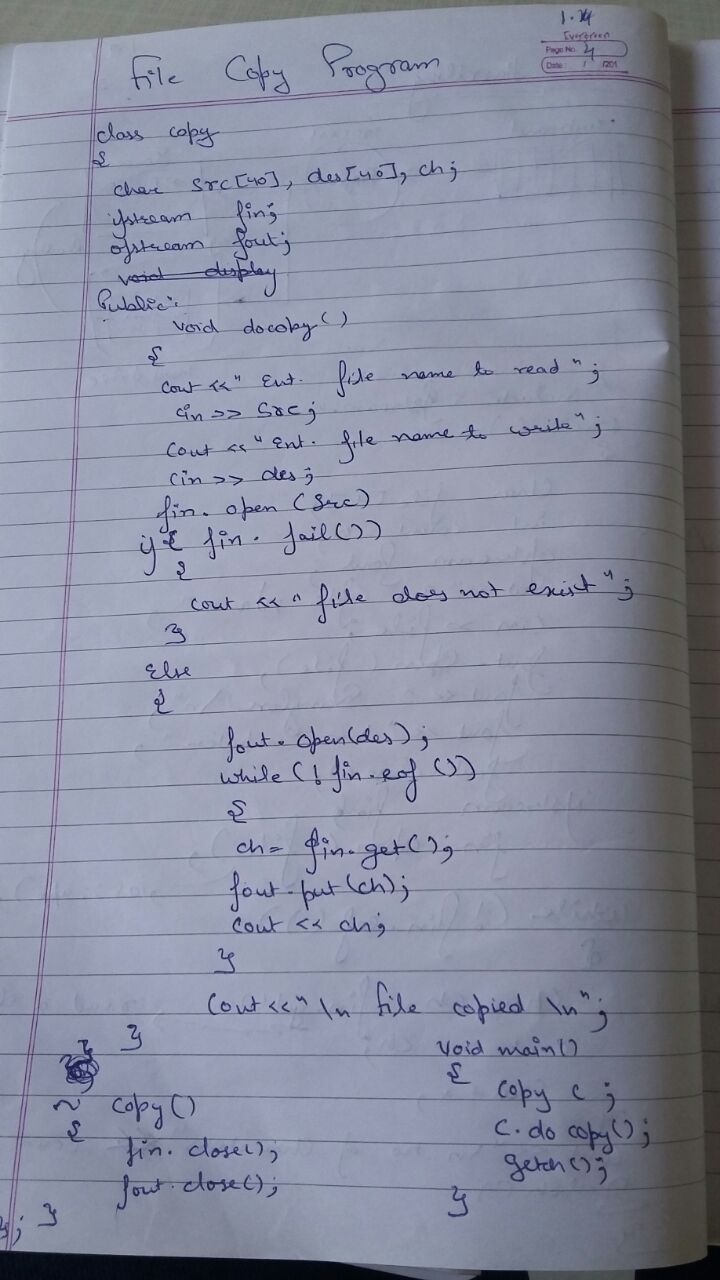 1.14
Evergreen
Page No. 4
Date: / /201
File Copy Program
class copy
{
char src[40], des[40], ch;
ifstream fin;
ofstream fout;
void display
Public:
void docopy()
{
cout <<" Ent. file name to read ";
cin >> src;
cout <<" Ent. file name to write";
cin >> des;
fin. open (src)
if ( fin. fail())
{
cout << " file does not exist ";
}
Else
{
fout. open(des);
while (! fin. eof ())
{
ch= fin.get();
fout.put(ch);
cout << ch;
}
cout<<" \n file copied \n";
}
}
~ copy()
{
fin. close();
fout. close();
}
};
void main()
{
copy c ;
c. do copy();
getch();
}